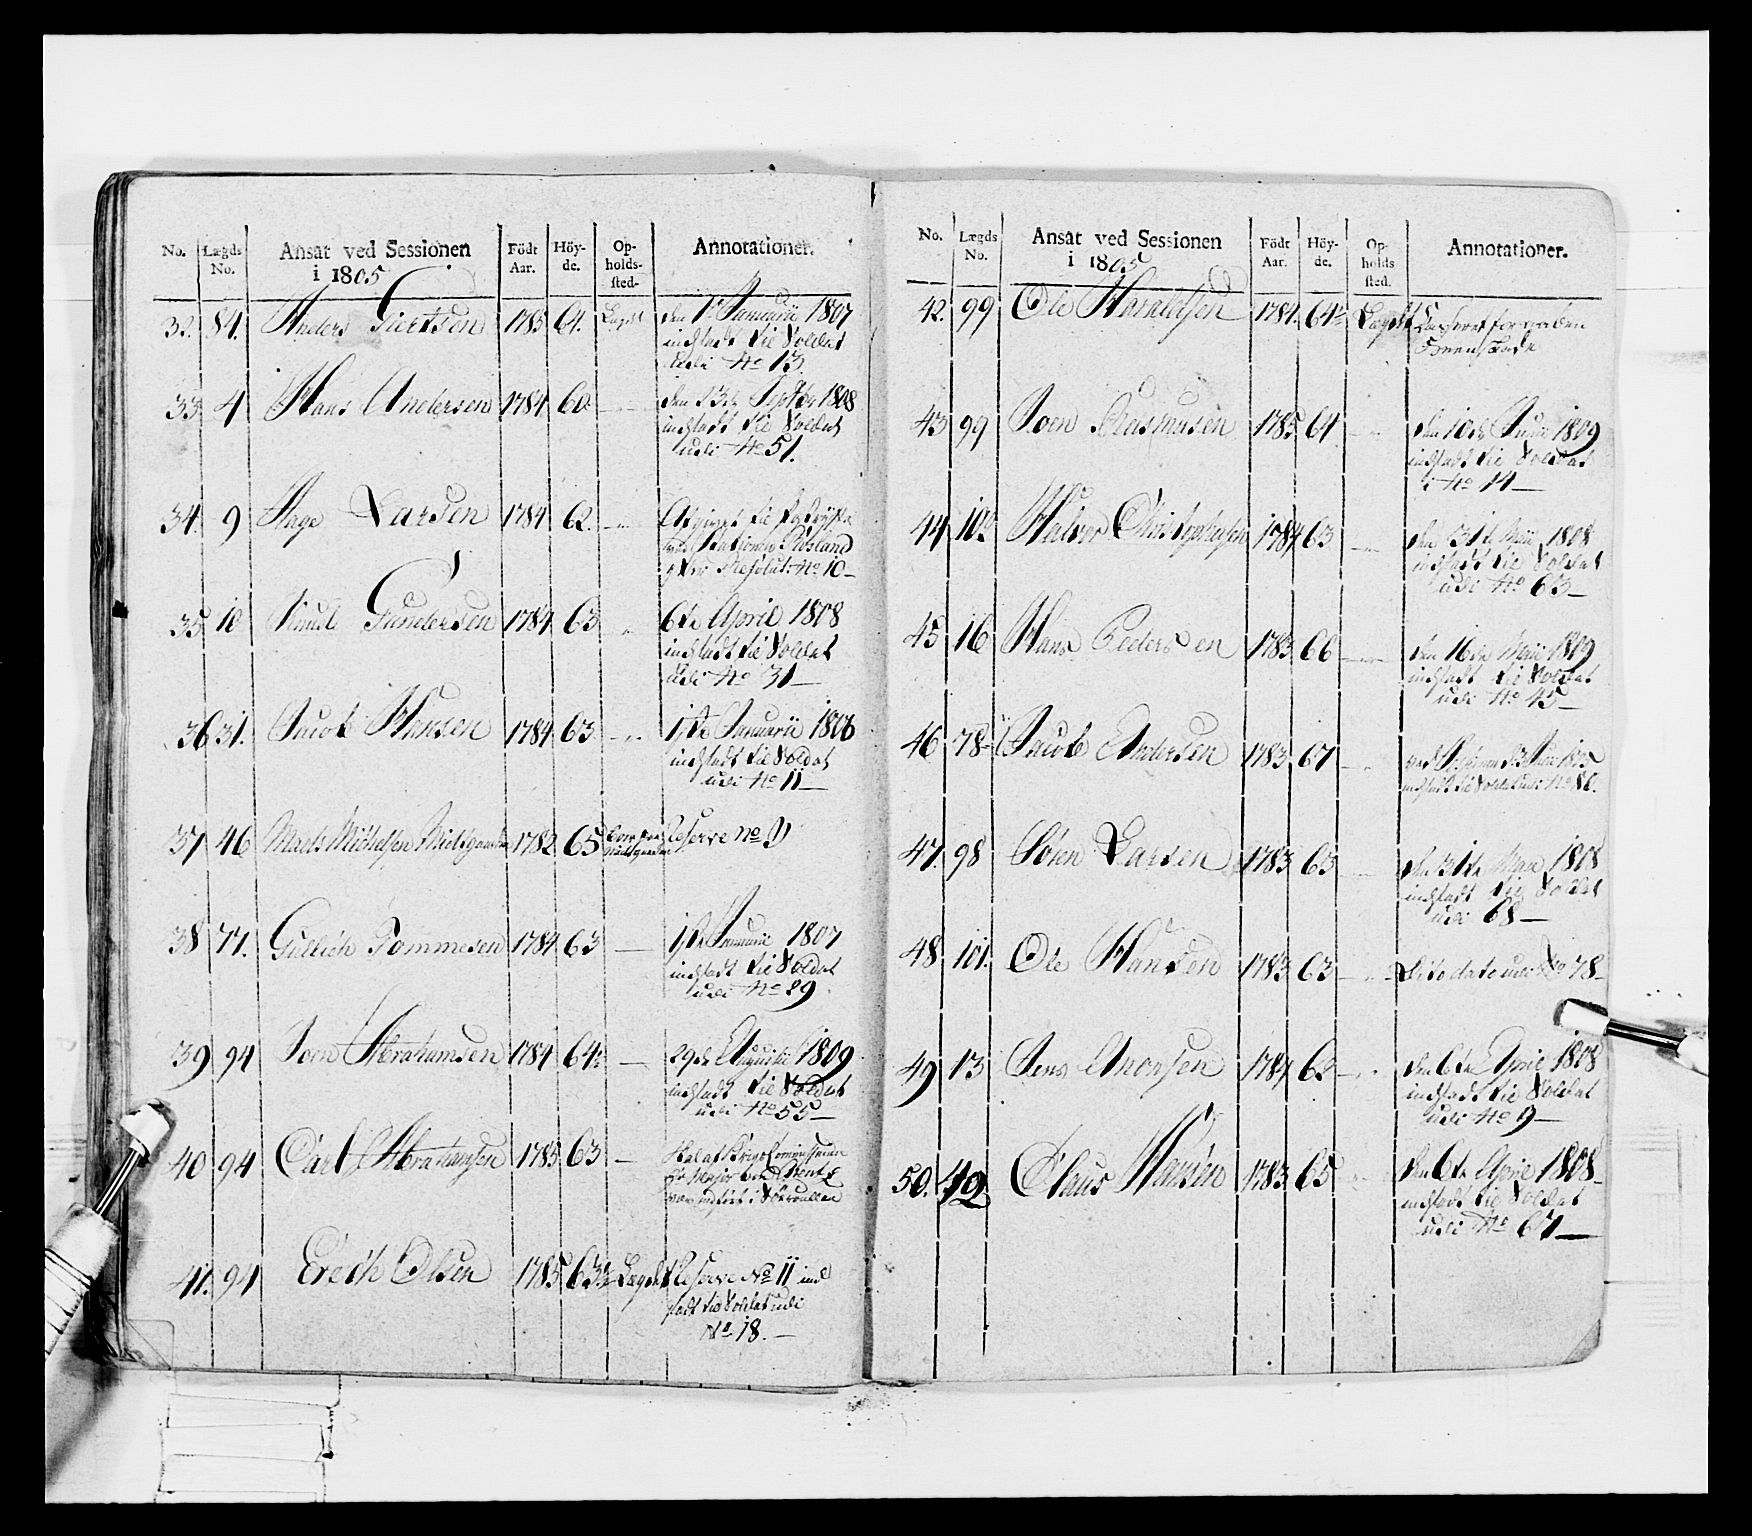 No. Lægds No. Ansat ved Sessionen i 1805 Födt Aar. Höy-de. Op-holds-sted. Annotationer.
32. 84. Anders Giertsen 1785 61. Lægdet den 1te Januarii 1807
indsadt til Soldat
udi No 13.
33 4 Hans Andersen 1784 60 den 23de Septbr 1808
indsadt til Soldat
udi No 51.
34. 9 Aage Larsen 1784 62. Afgivet til
No 10
35 10 Knud Gundersen 1784 63 6te April 1808
indsadt til Soldat
udi No 31
36 31. Jacob Hansen 1784 63 1te Januarii 1806
indsadt til Soldat
udi No 11
37 46 Mads Michelsen 1782 65 Reserve No 9
38 77. Gullich Tommesen 1784 63 1te Januarii 1807
indsadt til Soldat
udi No 29
39 94 Joen Abrahamsen 1784 64½ 29de Augusti 1809
indsadt til Soldat
udi No 55
40 94 Carl Abrahamsen 1785 63
41. 94 Erich Olsen 1785 63½ Lægdet Reserve No 11 ind
sadt til Soldat udi
No 18.
No. Lægds No. Ansat ved Sessionen i 1805 Födt Aar. Höy-de. Op-holds sted. Annotationer.
42. 99 Ole Haraldsen 1784. 64½ Lægdet
43 99 Joen Rasmusen 1785 61 den 10de Junii 1809
indsadt til Soldat
i No 14
44 102 Halvor Christophersen 1784 63 den 31te Maii 1808
indsadt til Soldat
udi No 63
45 16 Hans Pedersen 1783 66 den 16de Maii 1809
indsadt til Soldat
udi No 45
46 78 Jacob Andersen 1783 67 ved Sessionen
indsadt til Soldat udi No 86.
47. 98 Sören Larsen 1783 63 den 31te Maii 1808
indsadt til Soldat
udi 68
48 101. Ole Hansen 1783 63 dito dato udi No 78
49 13 Jens Anonsen 1784 62 den 6te April 1808
indsadt til Soldat
udi No 9
50. 42 Claus Hansen 1783 65 den 6te April 1808
indsadt til Soldat
udi No 67